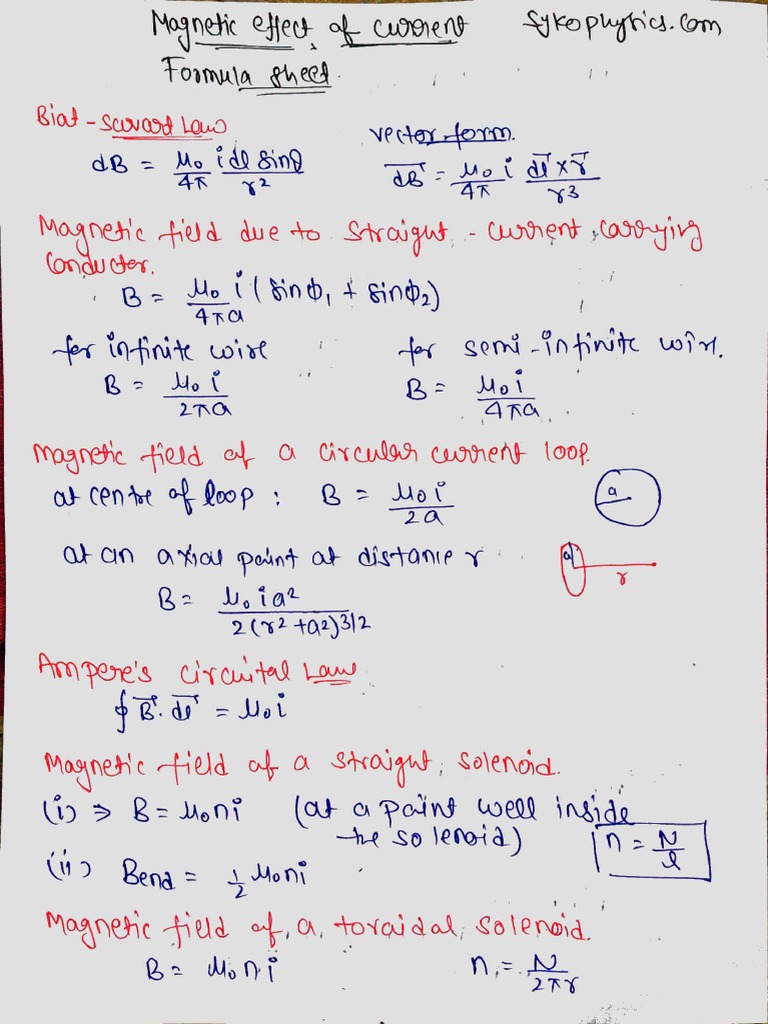 Magnetic effect of current Sykophysics.com
Formula sheet.
Biat-Savart Law
dB = μ₀/4π i dl sinθ/r²
vector form.
dB⃗ = μ₀/4π i dl⃗ × r⃗/r³
Magnetic field due to straight-current carrying
Conductor.
B = μ₀ i/4πa (sinφ₁ + sinφ₂)
for infinite wire for semi-infinite wire.
B = μ₀ i/2πa B = μ₀ i/4πa
Magnetic field of a circular current loop.
at centre of loop : B = μ₀ i/2a a
at an axial point at distance r a r
B = μ₀ i a²/2(r² + a²)3/2
Ampere's circuital Law
∮ B⃗. dl⃗ = μ₀ i
Magnetic field of a straight solenoid.
(i) ⇒ B = μ₀ n i (at a point well inside
the solenoid) n = N/l
(ii) Bend = 1/2 μ₀ n i
Magnetic field of a toraidal solenoid.
B = μ₀ n i n = N/2πr